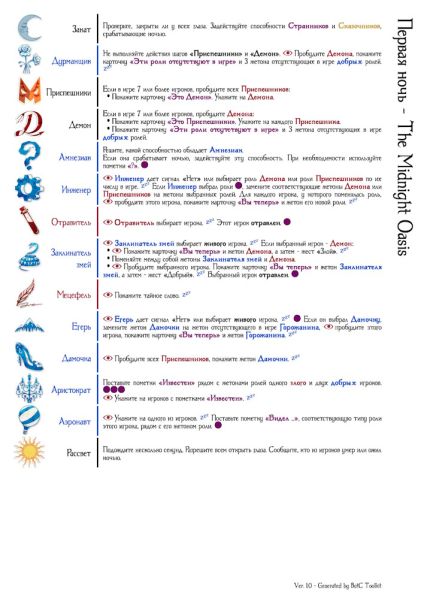 Первая ночь – The Midnight Oasis
Закат
Проверьте, закрыты ли у всех глаза. Задействуйте способности Странников и Сказочников,
срабатывающие ночью.
Дурманщик
Не выполняйте действия шагов «Приспешники» и «Демон». Пробудите Демона, покажите
карточку «Эти роли отсутствуют в игре» и 3 жетона отсутствующих в игре добрых ролей.
Приспешники
Если в игре 7 или более игроков, пробудите всех Приспешников:
• Покажите карточку «Это Демон». Укажите на Демона.
Демон
Если в игре 7 или более игроков, пробудите Демона:
• Покажите карточку «Это Приспешники». Укажите на каждого Приспешника.
• Покажите карточку «Эти роли отсутствуют в игре» и 3 жетона отсутствующих в игре
добрых ролей.
Амнезиак
Решите, какой способностью обладает Амнезиак
Если она срабатывает ночью, задействуйте эту способность. При необходимости используйте
пометки «?».
Инженер
Инженер дает сигнал «Нет» или выбирает роль Демона или роли Приспешников по их
числу в игре. Если Инженер выбрал роли, замените соответствующие жетоны Демона или
Приспешников на жетоны выбранных ролей. Для каждого игрока, у которого поменялась роль:
пробудите этого игрока, покажите карточку «Вы теперь» и жетон его новой роли.
Отравитель
Отравитель выбирает игрока. Этот игрок отравлен.
Заклинатель
змей
Заклинатель змей выбирает живого игрока. Если выбранный игрок – Демон:
• Покажите карточку «Вы теперь» и жетон Демона, а затем – жест «Злой».
• Поменяйте между собой жетоны Заклинателя змей и Демона.
• Пробудите выбранного игрока. Покажите карточку «Вы теперь» и жетон Заклинателя
змей, а затем – жест «Добрый». Выбранный игрок отравлен.
Мецефель
Покажите тайное слово.
Егерь
Егерь дает сигнал «Нет» или выбирает живого игрока. Если он выбрал Дамочку,
замените жетон Дамочки на жетон отсутствующего в игре Горожанина. пробудите этого
игрока, покажите карточку «Вы теперь» и жетон Горожанина.
Дамочка
Пробудите всех Приспешников, покажите жетон Дамочки.
Аристократ
Поставьте пометки «Известен» рядом с жетонами ролей одного злого и двух добрых игроков.
Укажите на игроков с пометками «Известен».
Аэронавт
Укажите на одного из игроков. Поставьте пометку «Видел ...», соответствующую типу роли
этого игрока, рядом с его жетоном роли.
Рассвет
Подождите несколько секунд. Разрешите всем открыть глаза. Сообщите, кто из игроков умер или ожил
ночью.
Ver. 1.0 – Generated by BotC Toolkit